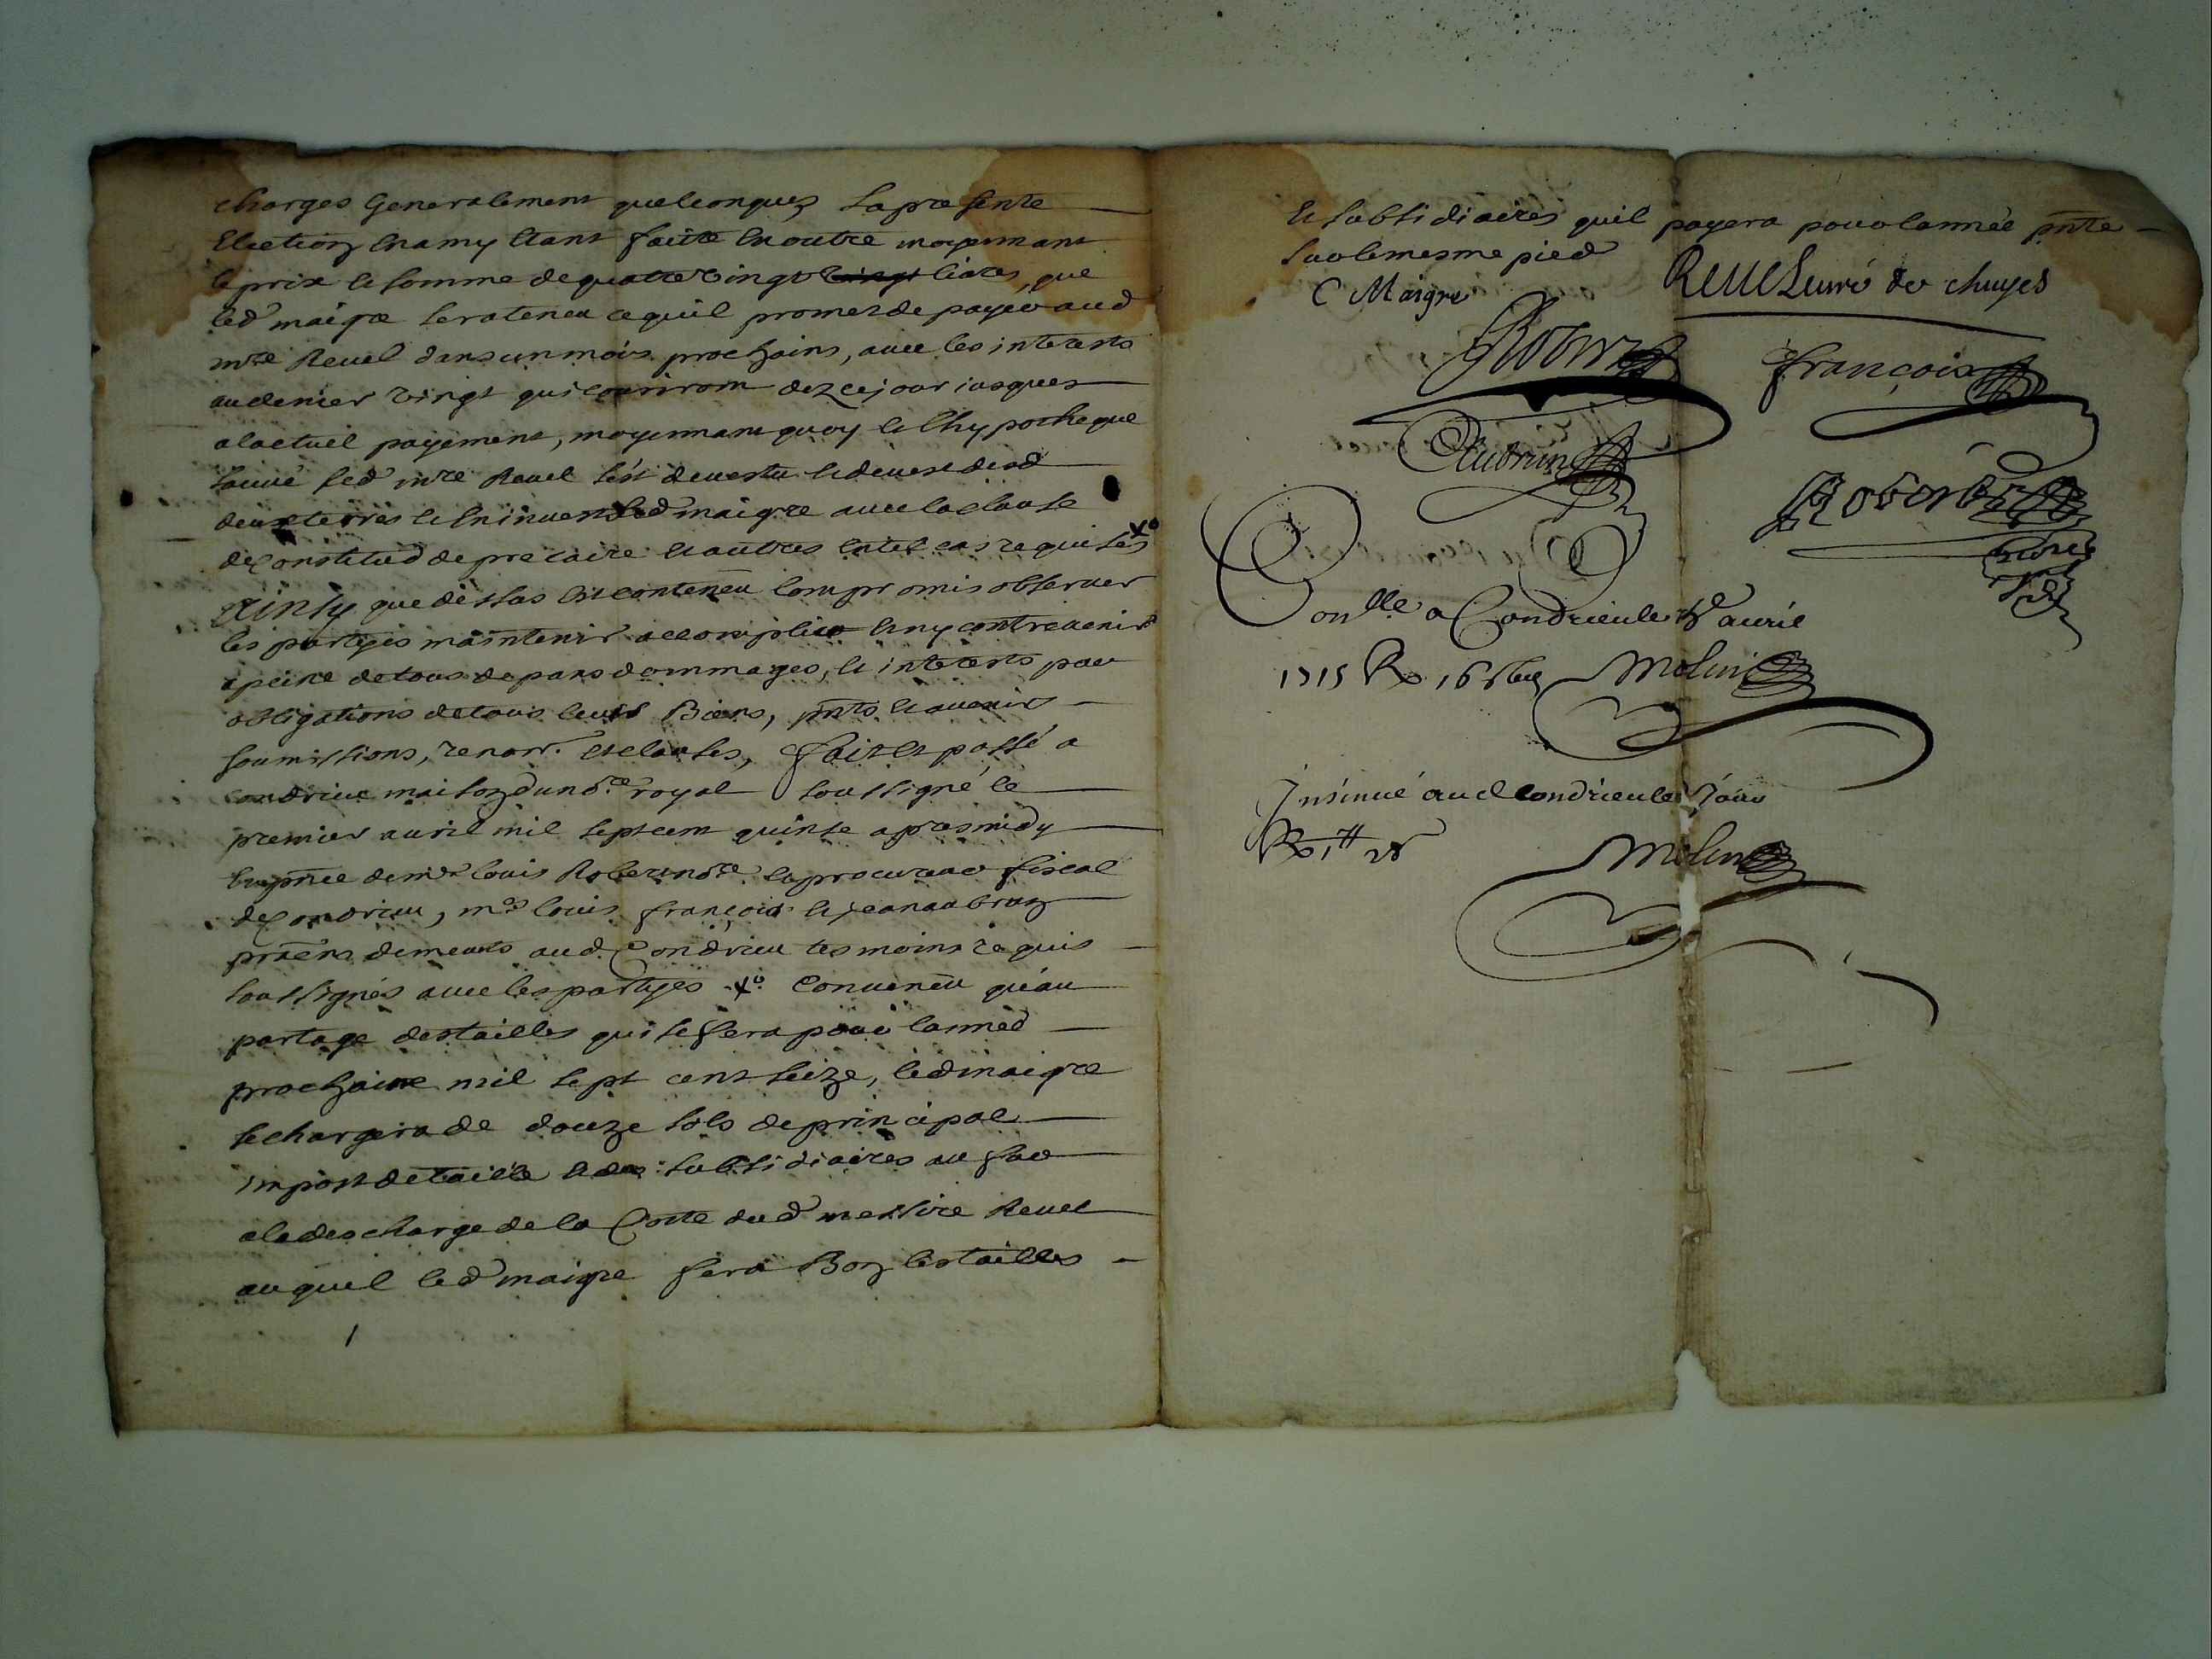 charges Generalement quelconques La presente
Election En amy Etant faitte En outre moyennant
le prix et somme de quatre vingt livres, que
led maigre sera tenu ce quil promet de payer aud
mre Revel dans un mois prochains, avec les interests
au denier vingt qui couriront dez ce jour jusques
a lactuel payement, moyennant quoy et lhypotheque
led mre Revel s'est devestu et devest desd
deux terres et En investi led maigre avec la clause
de Constitud de precaire et autres En tel cas requises xo
Ainsy que dessus Est contenu Eont promis observer
les partyes maintenir accomplir Et ny contrevenir
a peine de tous depans dommages, et interests par
obligations de tous leurs Biens, pnts et avenir
soumissions, renon. et clauses, fait et passé a
condrieu maison du nore royal soussigné le
premier avril mil sept cent quinse apres midy
En pnce de mr louis Robert nore et procureur fiscal
de Condrieu, mes louis françois et jean aubrun
pratns demeurts aud Condrieu tesmoins requis
soussignés avec les partyes xo Convenu qu'au
partage des tailles qui se fera pour lannéé
prochaine mil sept cent seize, led maigre
se chargera de douze sols de principal
impost de taille et des subsidiaires au
a la descharge de la Cotte dud messire Revel
auquel led maigre fera Bon les tailles
Et subsidiaires quil payera pour lannéé pnte
sur le mesme pied
C Maigre
Revel curé de chuyes
Robert
françois
Aubrun
Robert
nore
Conlle a Condrieu le avril
1715 R 16
Molin
Insinué aud Condrieu led jour
R
Molin